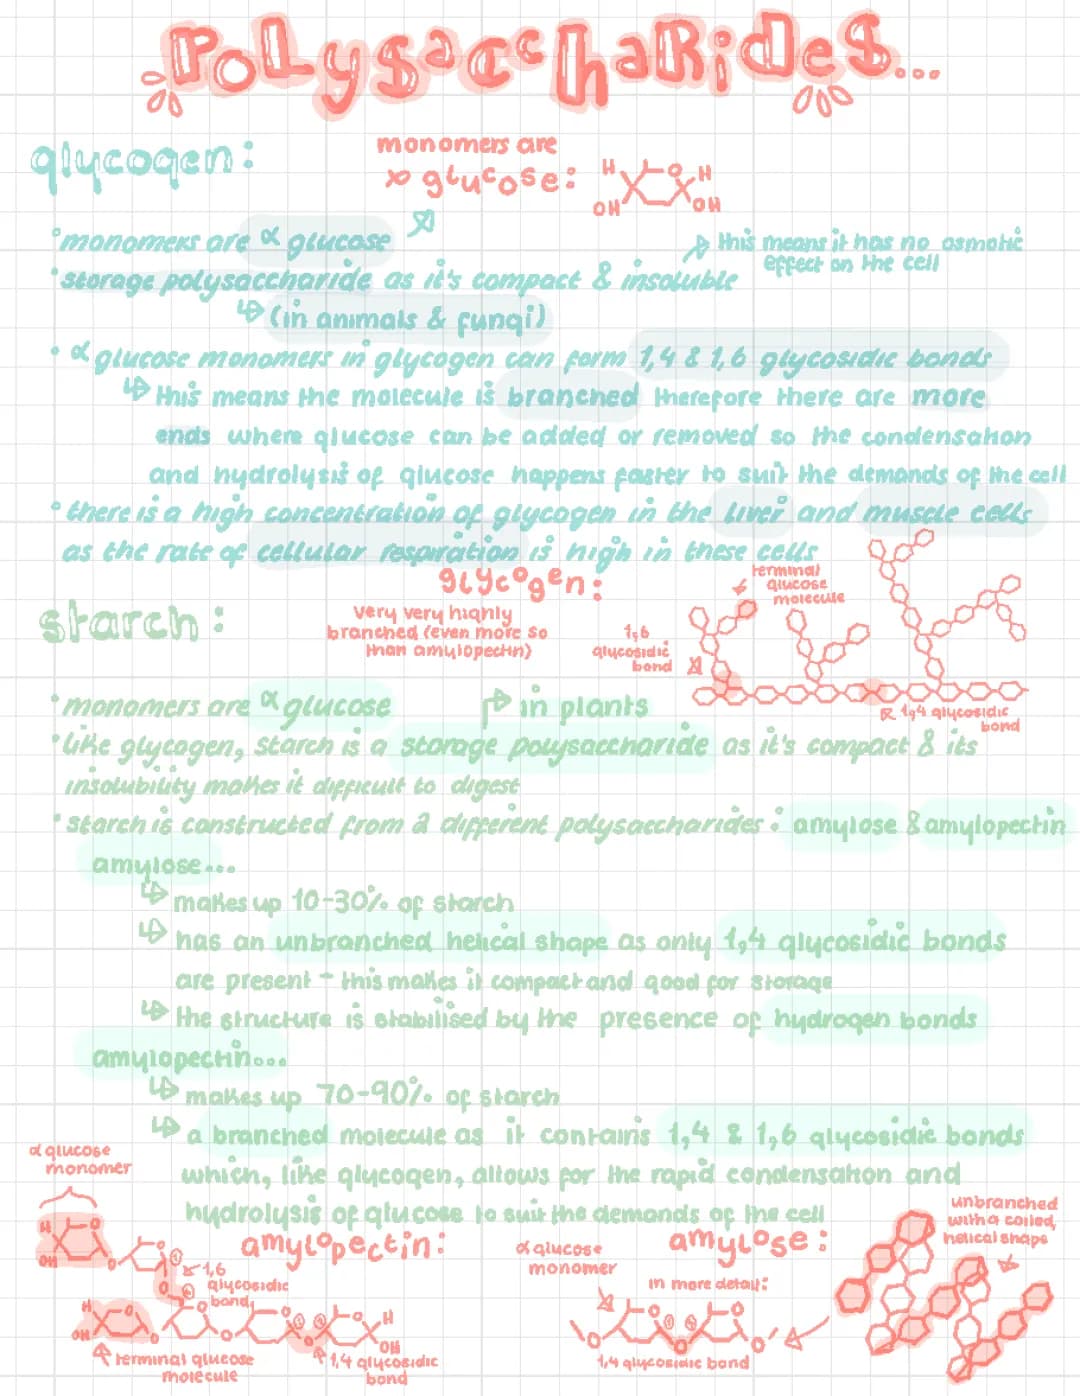 Polysaccharides...
glycogen:
monomers are
∝ glucose:
H
O
H
OH
OH
•monomers are ∝ glucose
this means it has no osmotic
effect on the cell
•storage polysaccharide as it's compact & insoluble
(in animals & fungi)
• ∝ glucose monomers in glycogen can form 1,4 & 1,6 glycosidic bonds
this means the molecule is branched therefore there are more
ends where glucose can be added or removed so the condensation
and hydrolysis of glucose happens faster to suit the demands of the cell
•there is a high concentration of glycogen in the liver and muscle cells
as the rate of cellular respiration is high in these cells
glycogen:
very very highly
branched (even more so
than amylopectin)
terminal
glucose
molecule
1,6
glycosidic
bond
1,4 glycosidic
bond
starch:
•monomers are ∝ glucose
in plants
•like glycogen, starch is a storage polysaccharide as it's compact & its
insolubility makes it difficult to digest
•starch is constructed from 2 different polysaccharides: amylose & amylopectin
amylose...
makes up 10-30% of starch
has an unbranched helical shape as only 1,4 glycosidic bonds
are present - this makes it compact and good for storage
the structure is stabilised by the presence of hydrogen bonds
amylopectin...
makes up 70-90% of starch
a branched molecule as it contains 1,4 & 1,6 glycosidic bonds
which, like glycogen, allows for the rapid condensation and
hydrolysis of glucose to suit the demands of the cell
∝ glucose
monomer
amylopectin:
H
O
OH
O
O
1
6
O
1,6
glycosidic
bond
H
O
OH
O
O
O
O
1
4
O
O
H
OH
terminal glucose
molecule
1,4 glycosidic
bond
amylose:
∝ glucose
monomer
in more detail:
O
O
1
4
O
O
O
1,4 glycosidic bond
unbranched
with a coiled,
helical shape